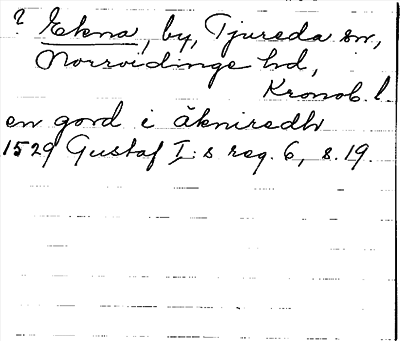 ? Ekna, by, Tjureda sn,
Norrvidinge hd,
Kronob. l.
en gord i åkniredh
1529 Gustaf I:s reg. 6, s. 19.